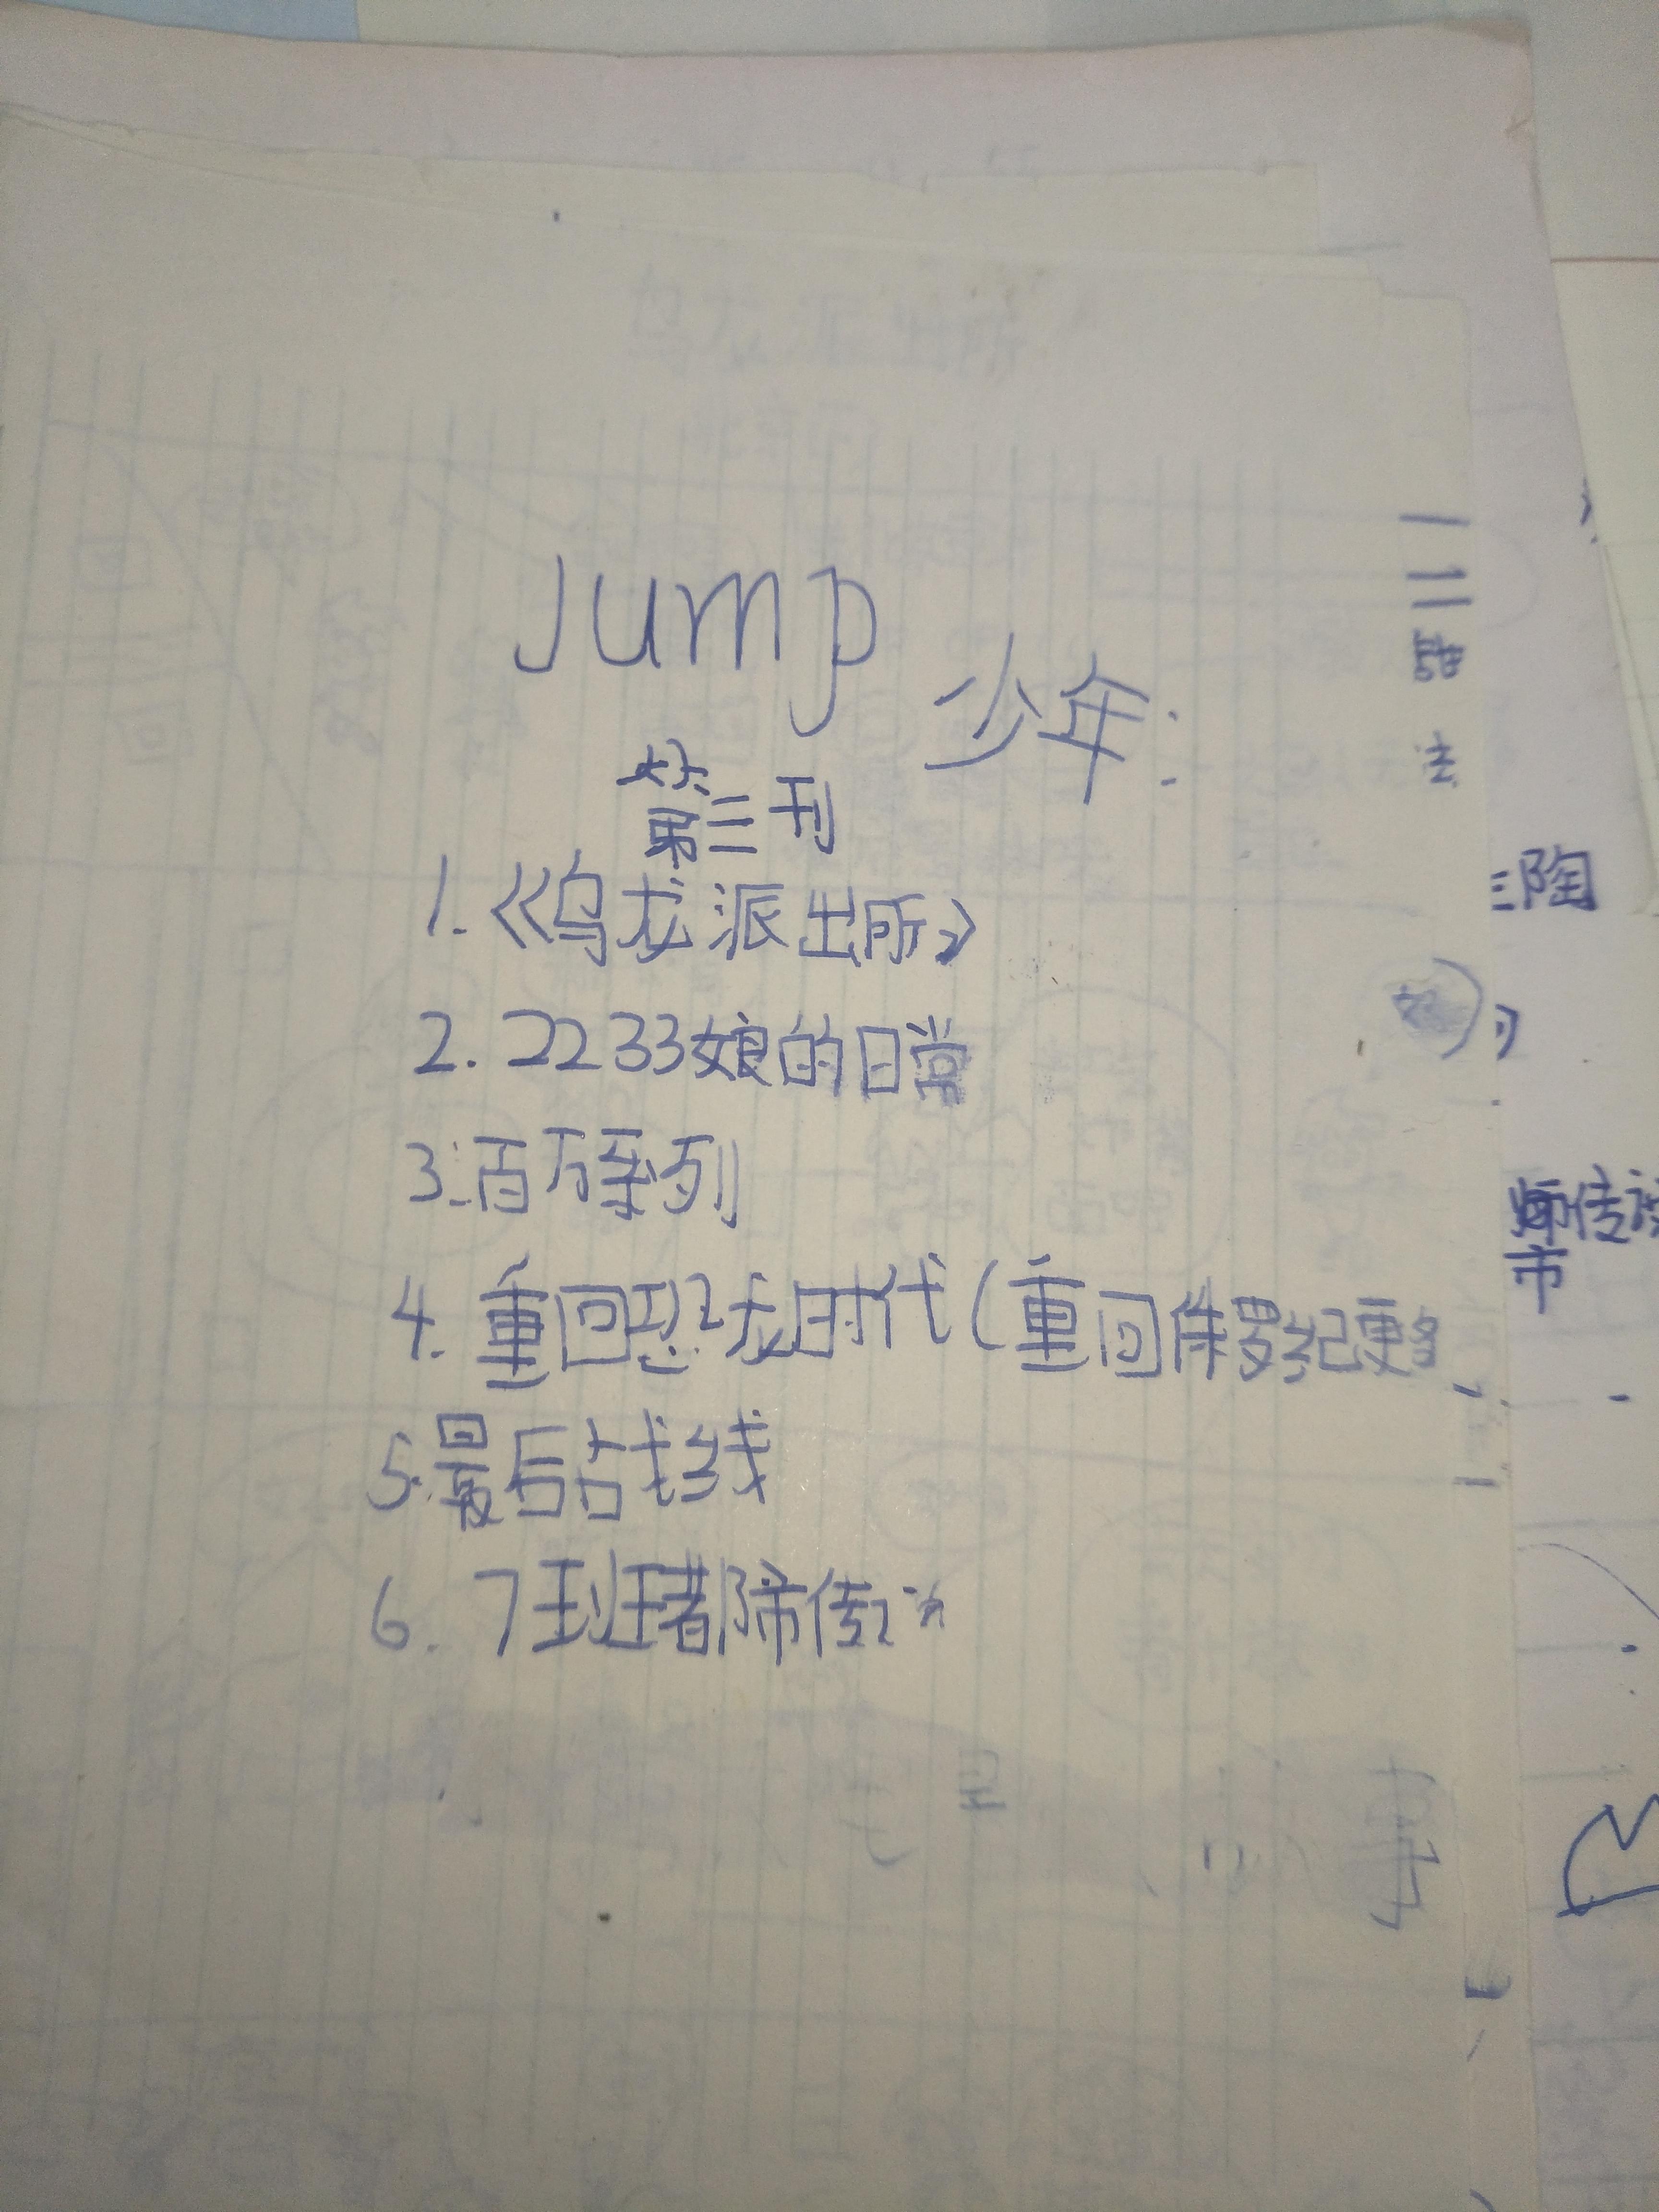 Jump
少年:
第三刊
1.《乌龙派出所》
2.2233娘的日常
3.百万系列
4.重回恐龙时代(重回侏罗纪更名
5.最后战线
6.7班都市传
三陶
师传说
市